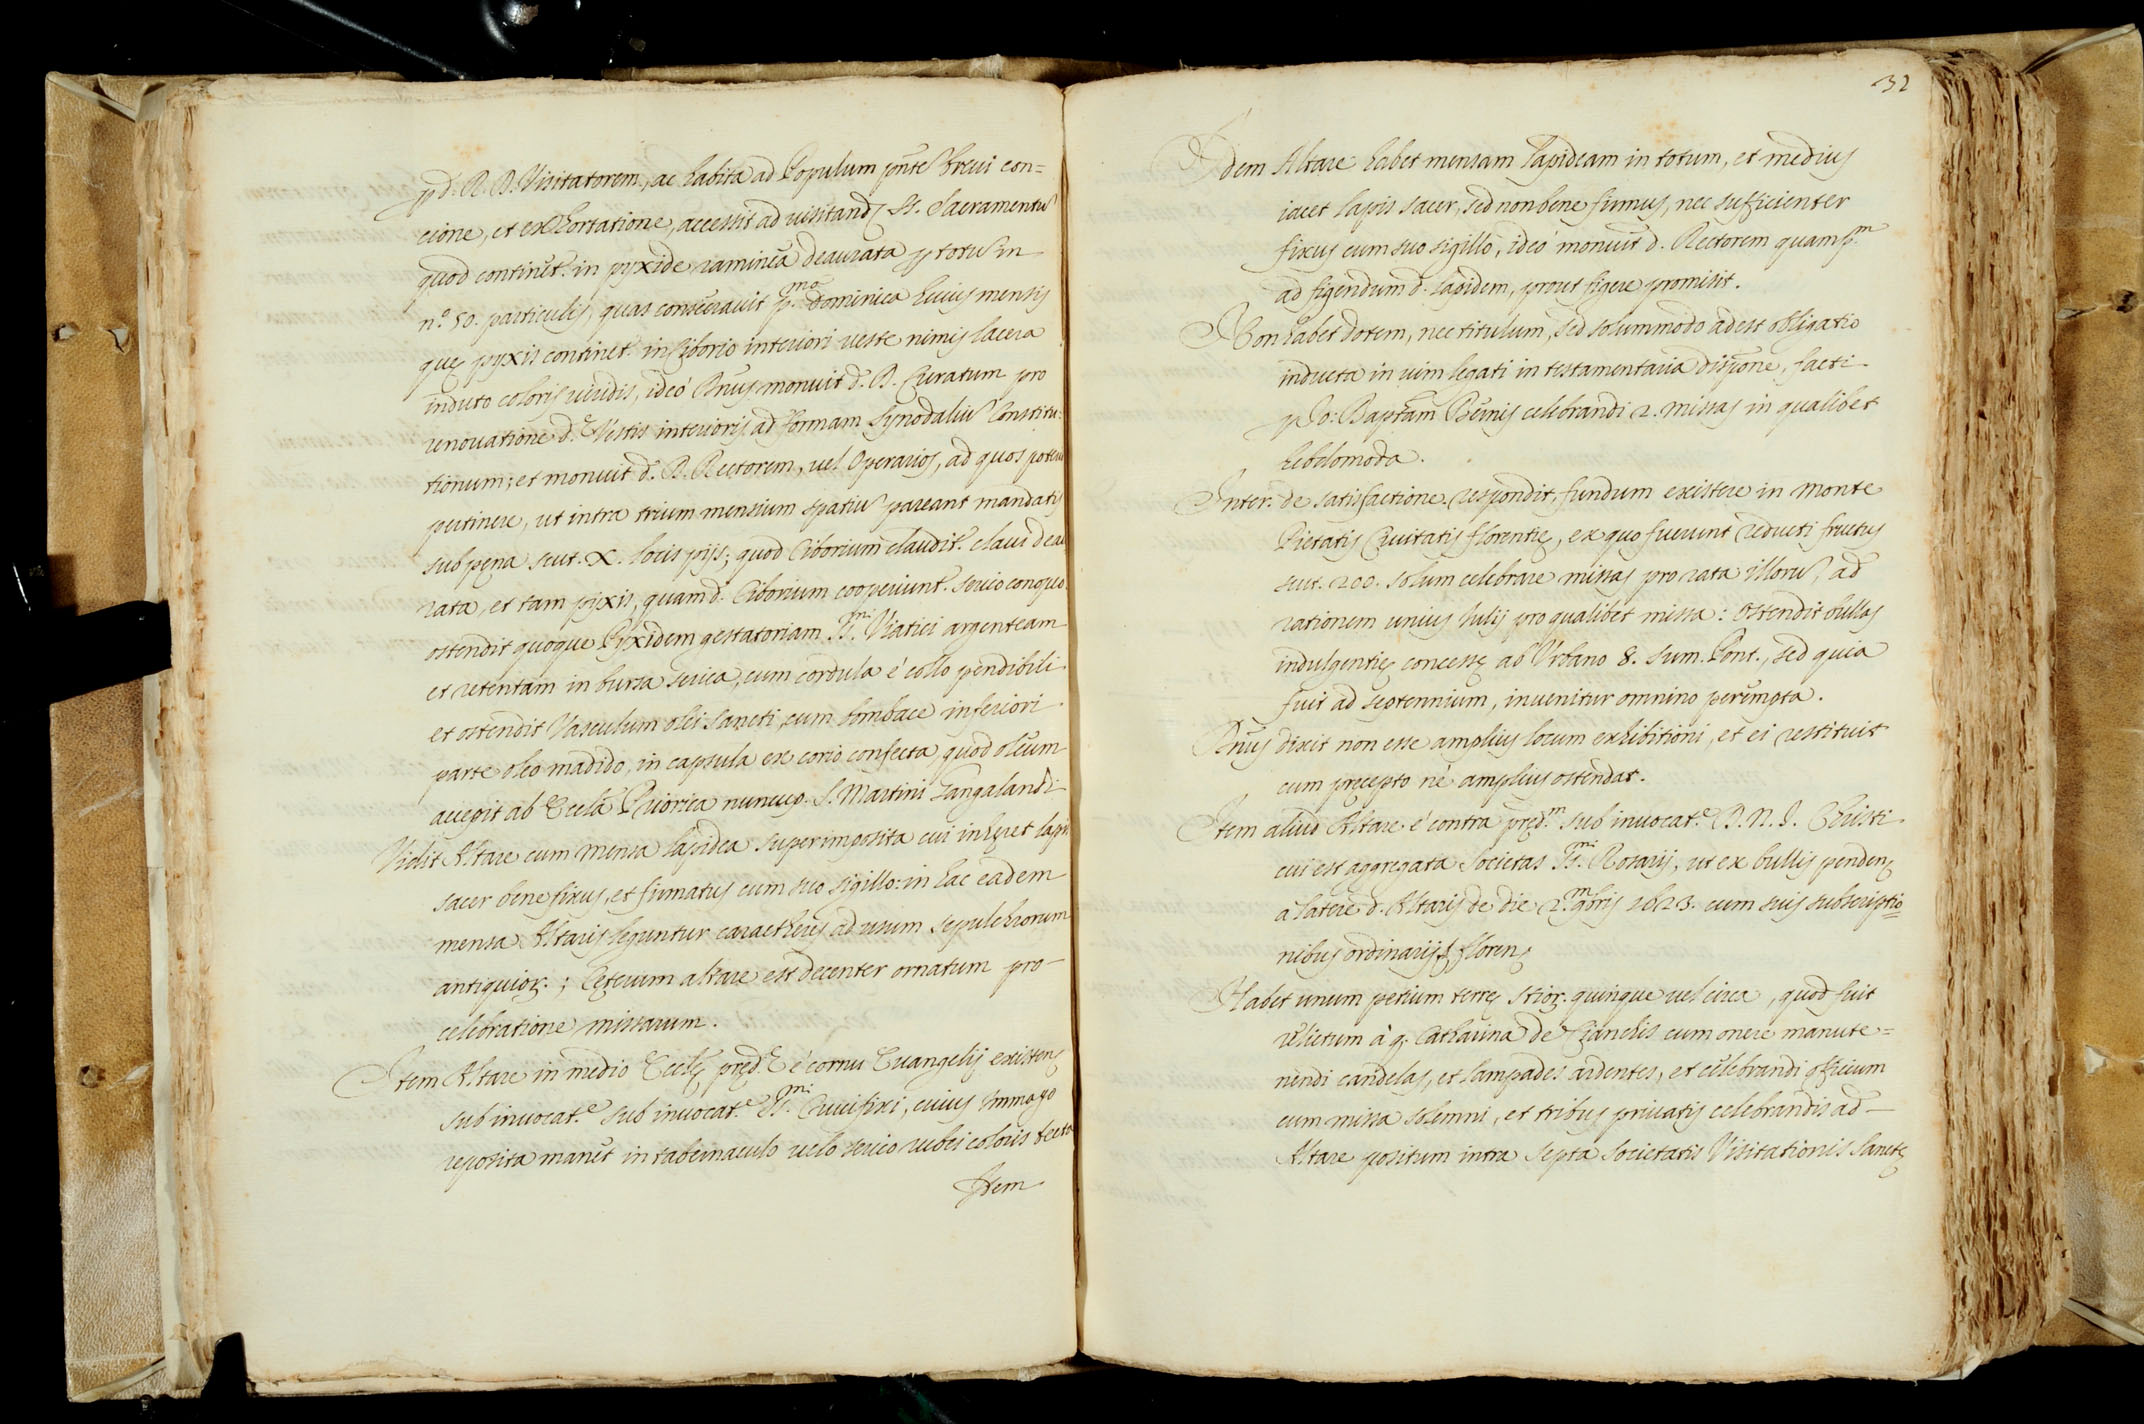 p d. R. D. Visitatorem, ac habita ad Populum pñte brevi con=
cione, et exhortatione, accessit ad visitandȝ SS. Sacramentũ
quod continet.r in pyxide raminea deaurata p totũ in
n.º 50. particulis, quas consecravit p.mo Dominica huius mensis
quę pyxis continet.r in Ciborio interiori veste nimis lacera
induto coloris viridis, ideó Rñus monuit d. R. Curatum pro
renovatione d.ę Vestis interioris ad formam Synodaliũ Constitu=
tionum; et monuit d. R. Rectorem, vel Operarios, ad quos poterit
pertinere, ut intra trium mensium spatiũ pareant mandatis
sub pęna scut. X. locis pijs; quod Ciborium claudit.r clavi deau
rata, et tam pyxis, quam d. Ciborium cooperiunt.r serico conopeo.
ostendit quoque Pyxidem gestatoriam SS.mi Viatici argenteam
et retentam in bursa serica, cum cordula é collo pendibili
et ostendit Vasculum olei Sancti, cum bombace inferiori
parte oleo madido, in capsula ex corio confecta, quod oleum
accepit ab Eccla Priorica nuncup. S. Martini Gangalandi
Vidit Altare cum Mensa lapidea superimposita cui inhęret lapis
sacer bene fixus, et firmatus cum suo sigillo: in hac eadem
mensa Altaris leguntur caractheres ad usum sepulchrorum
antiquioȝ.; Cęterum altare est decenter ornatum pro
celebratione missarum.
Item Altare in medio Ecclę pręd.ę é cornu Evangelij existens
sub invocat.e sub invocat.e SS.mi Crucifixi, cuius Immago
reposita manet in tabernaculo velo serico rubei coloris tecta
Item
32
Idem Altare habet mensam lapideam in totum, et medius
iacet lapis sacer, sed non bene firmus, nec sufficienter
fixus cum suo sigillo, ideó monuit d. Rectorem quamp.m
ad figendum d. lapidem, prout figere promisit.
Non habet dotem, nec titulum, sed solummodo adest obligatio
inducta in vim legati in testamentaria dispone, facti
p Io: Baptam Benis celebrandi 2. missas in qualibet
hebdomoda.
Inter. de satisfactione. respondit, fundum existere in Monte
Pietatis Civitatis Florentię, ex quo fuerunt reducti fructus
scut. 200. solum celebrare missas pro rata illorũ, ad
rationem unius Iulij pro qualibet missa: Ostendit bullas
indulgentię concessę ab Urbano 8. Sum. Pont., sed quia
fuit ad septennium, invenitur omnino perempta.
Rñus dixit non esse amplius locum exhibitioni, et ei restituit
cum pręcepto né amplius ostendat.
Item aliud Altare é contra pręd.m sub invocat.e D. N. I. Christi
cui est aggregata Societas SS.mi Rosarij, ut ex bullis pendenȝ
a latere d. Altaris de die 2. m 9bris 1623. cum suis subscriptio=
nibus ordinarijs florenȝ
Habet unum petium terrę stioȝ. quinque vel circa, quod fuit
relictum à q. Catharina de Cianchis cum onere manute=
nendi candelas, et lampades ardentes, et celebrandi officium
cum missa solemni, et tribus privatis celebrandis ad
Altare positum intra septa Societatis Visitationis Sanctę